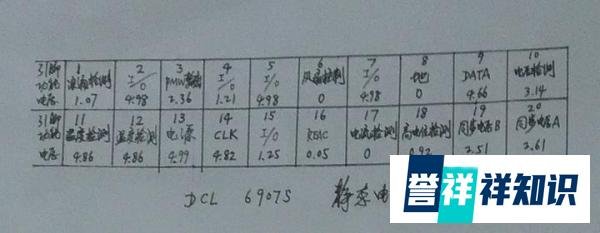 引脚 1 2 3 4 5 6 7 8 9 10
功能 浪涌检测 I/O PMW输出 I/O I/O 风扇控制 I/O 地 DATA 电压检测
电压 1.07 4.98 2.36 1.21 4.98 0 4.98 0 4.66 3.14
引脚 11 12 13 14 15 16 17 18 19 20
功能 温度检测 温度检测 电源 CLK I/O 电流检测 高电位检测 同步电压B 同步电压A
电压 4.86 4.86 4.99 4.82 1.25 0.05 0 0.92 2.51 2.61
DCL 6907S 静态电
誉祥祥知识